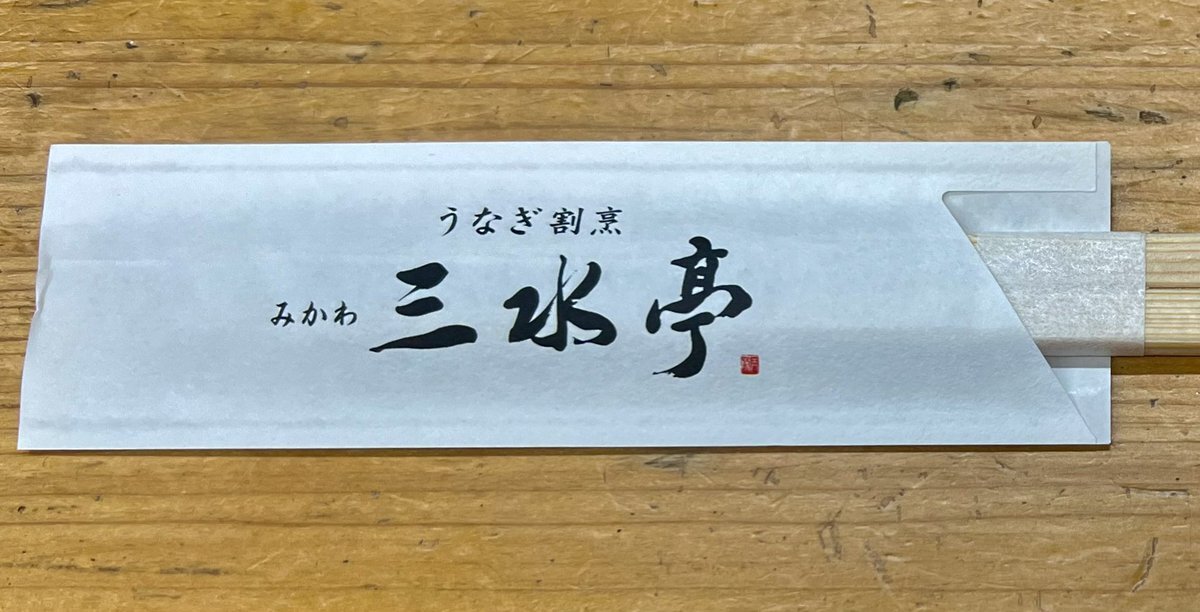 うなぎ割烹
みかわ 三水亭